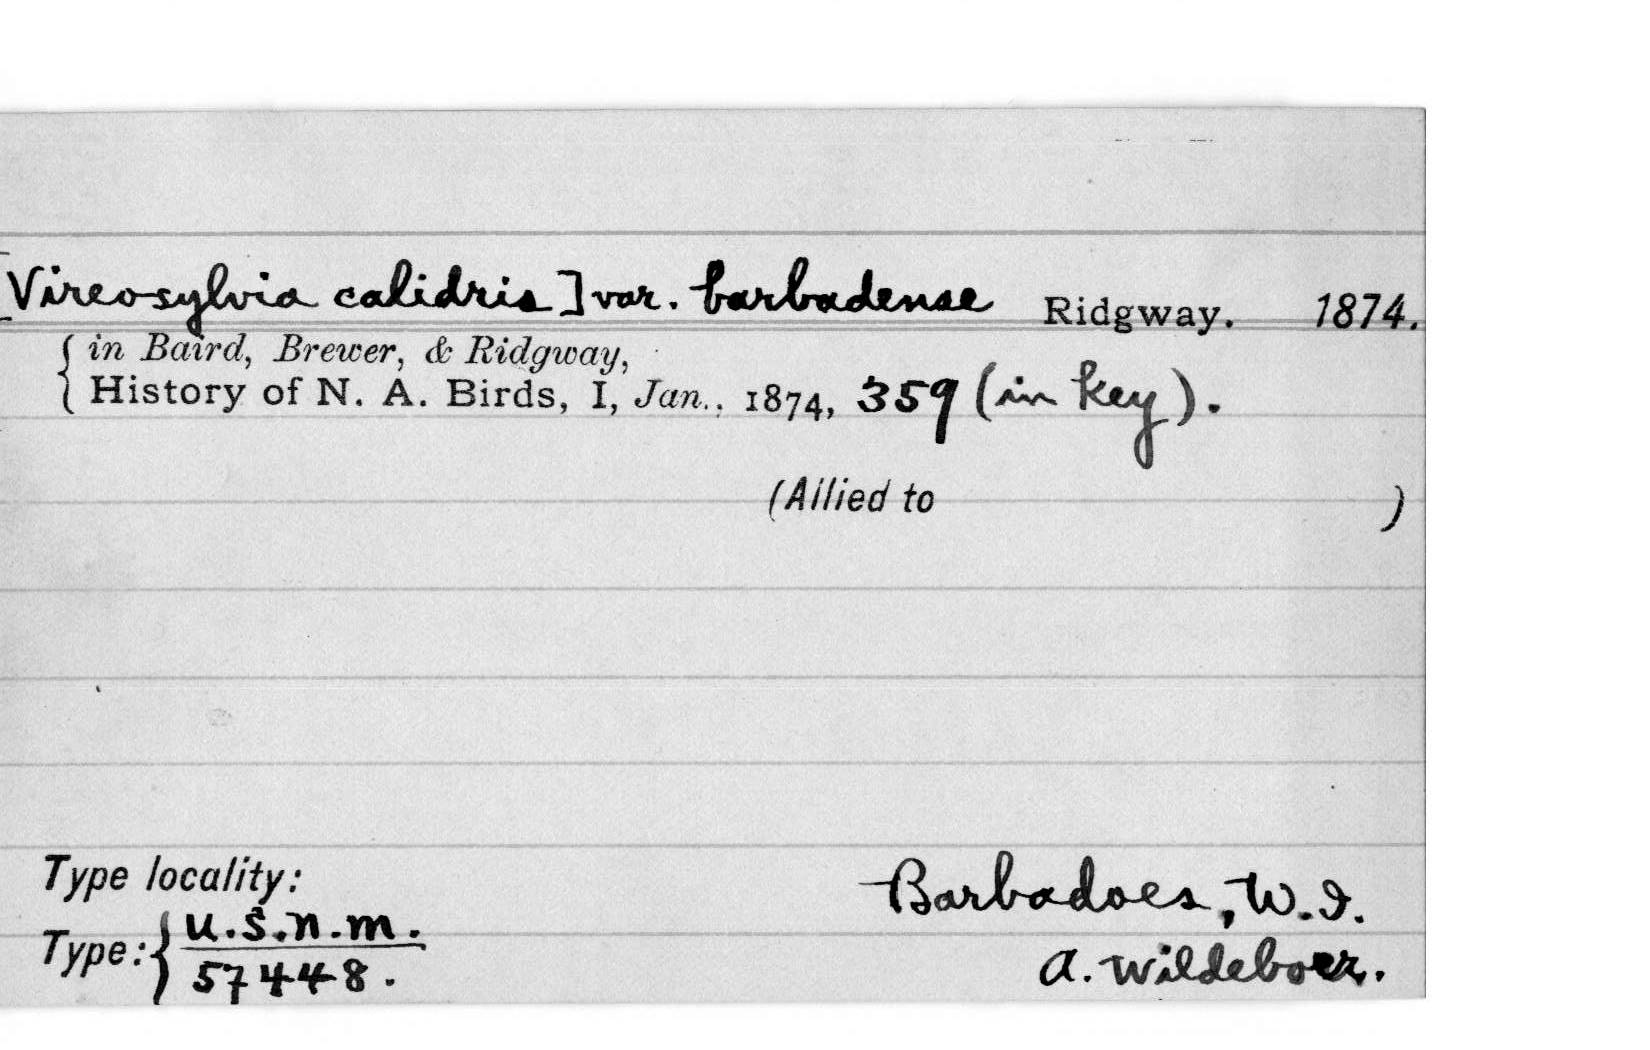 [Vireosylvia calidris] var. barbadense Ridgway. 1874.
in Baird, Brewer, & Ridgway,
History of N. A. Birds, I, Jan., 1874, 359 (in key).
(Allied to )
Type locality: Barbadoes, W.I.
Type: { U.S.N.M.
57448. A. Wildeboer.